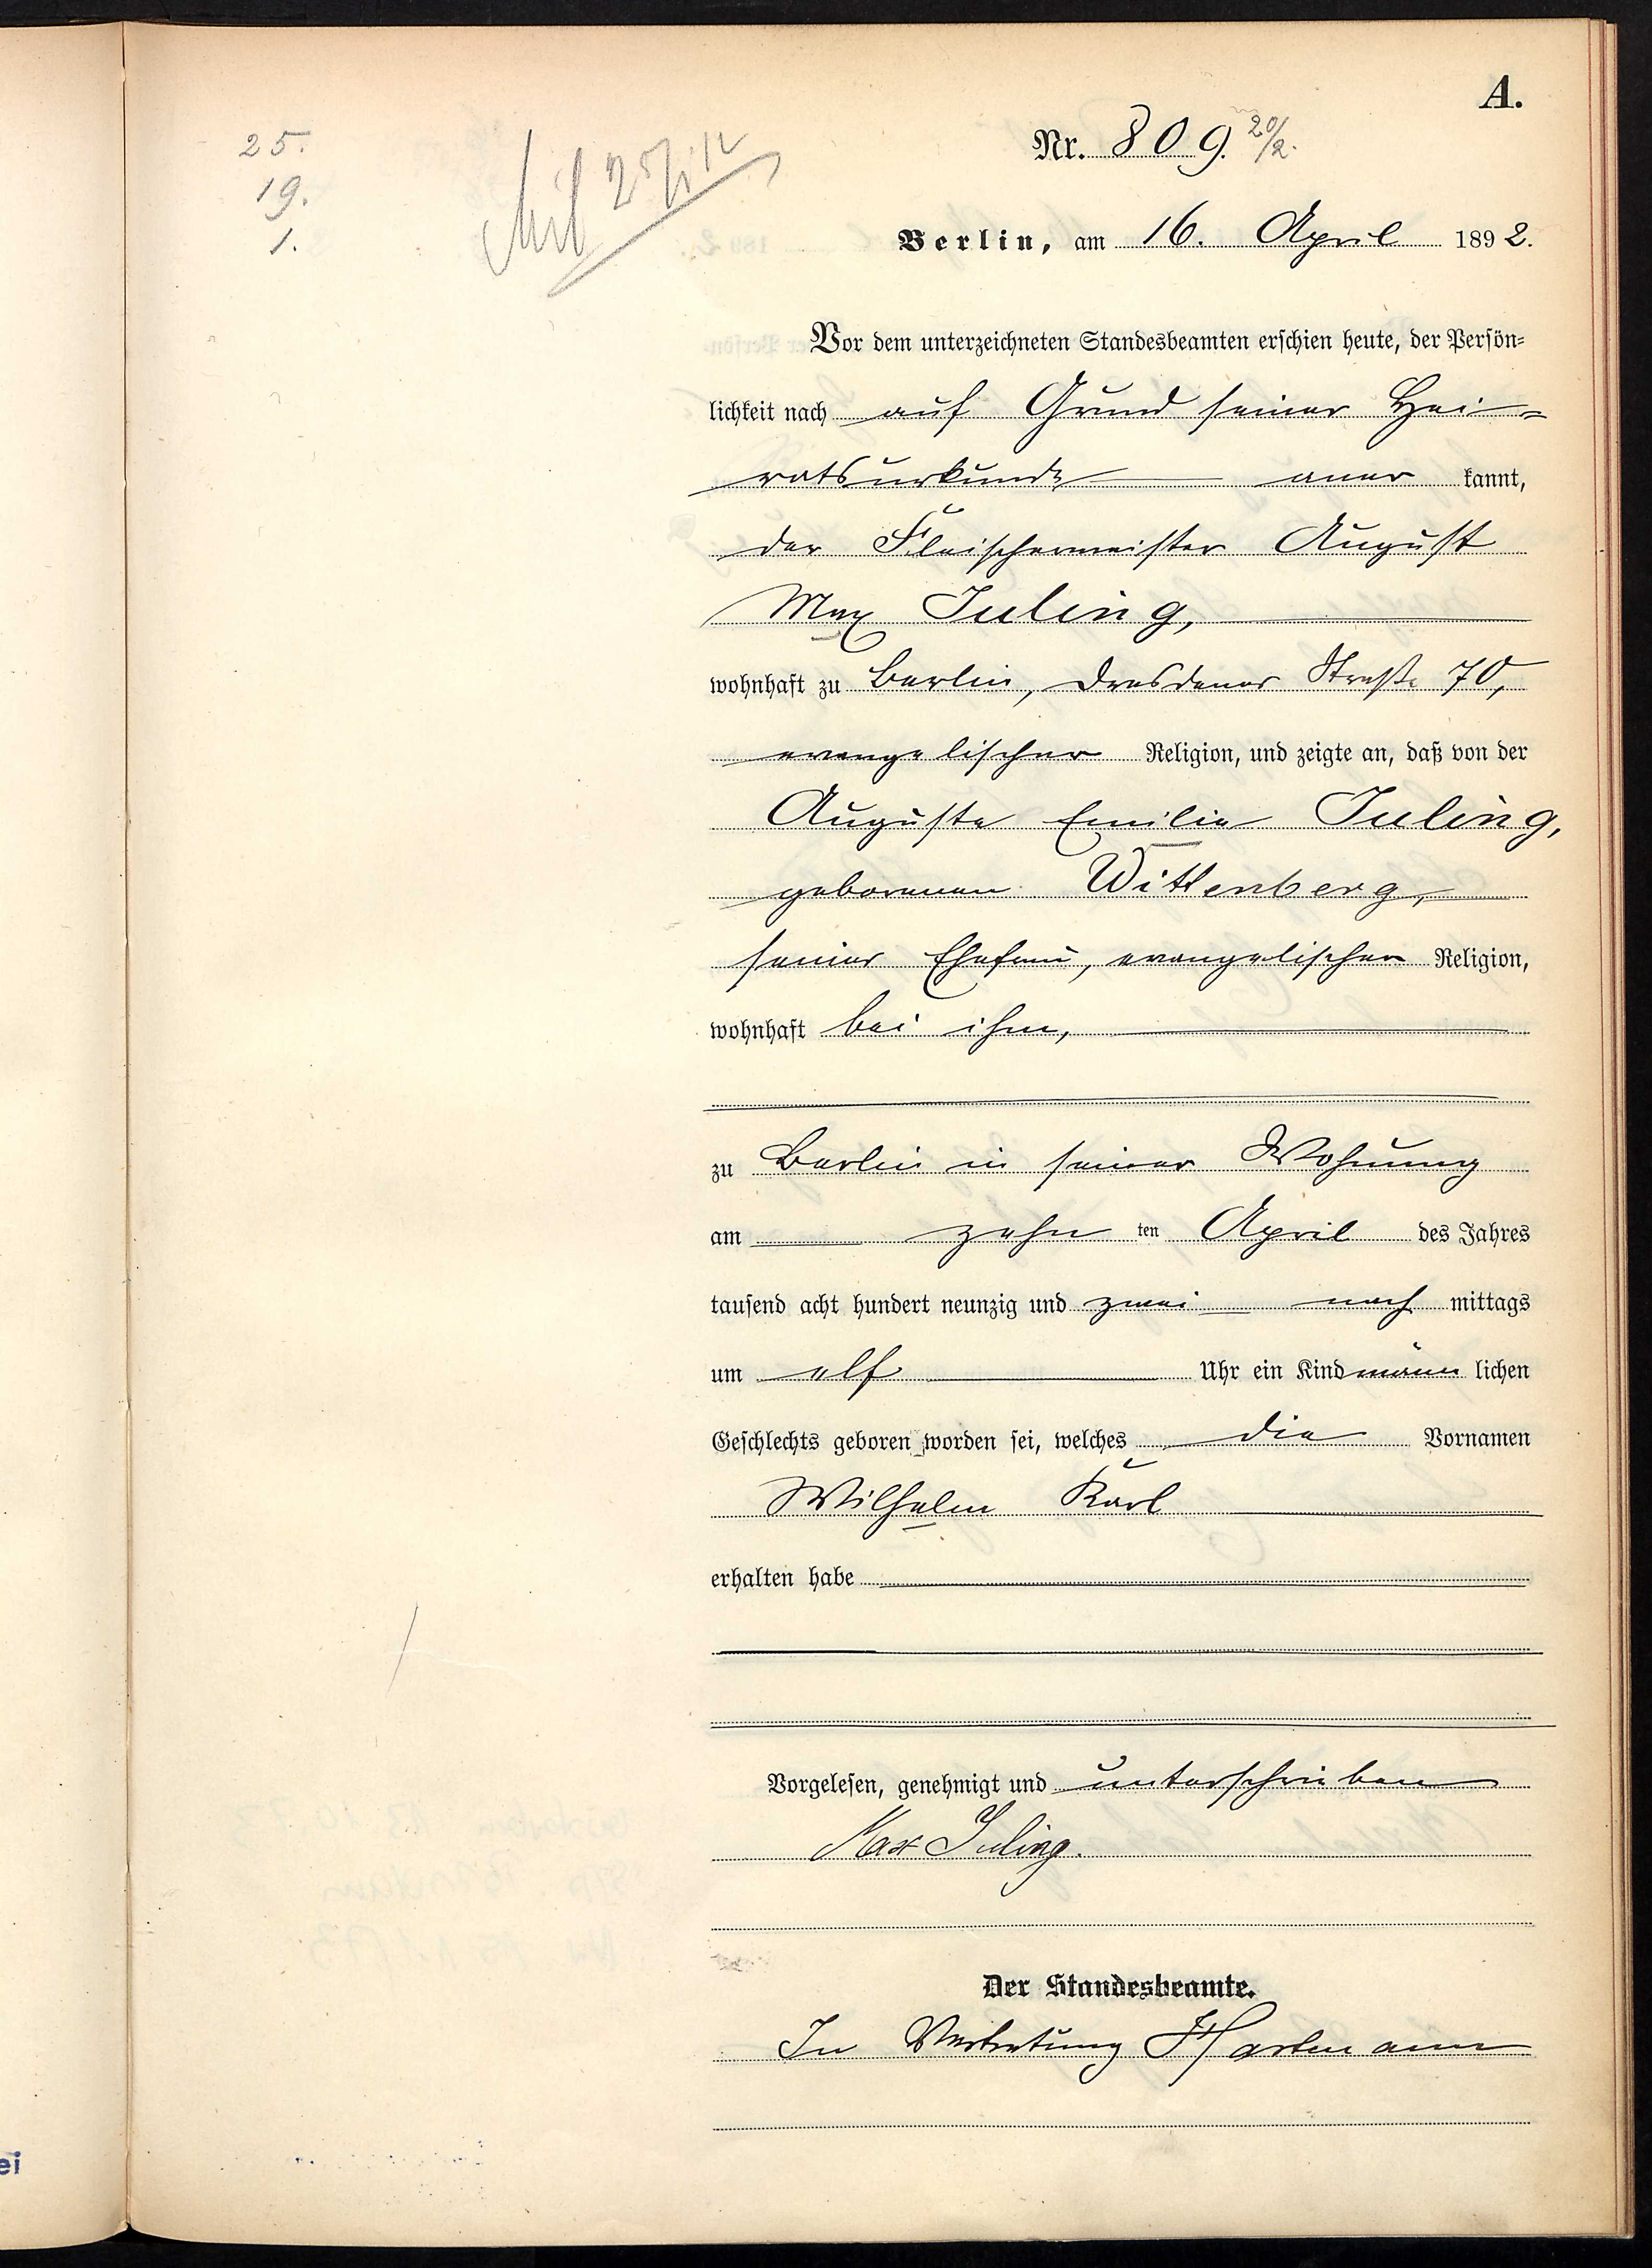 A.
Nr. 809. 20/2.
25.
19.
1.
Berlin, am 16. April 1892.
Vor dem unterzeichneten Standesbeamten erschien heute, der Persön=
lichkeit nach auf Grund seiner Hei=
ratsurkunde aner kannt,
der Fleischermeister August
Max Juling,
wohnhaft zu Berlin, Dresdener Straße 70,
evangelischer Religion, und zeigte an, daß von der
Auguste Emilie Juling,
geborenen Wittenberg,
seiner Ehefrau, evangelischer Religion,
wohnhaft bei ihm,
zu Berlin in seiner Wohnung
am zehn ten April des Jahres
tausend acht hundert neunzig und zwei nach mittags
um elf Uhr ein Kind männ lichen
Geschlechts geboren worden sei, welches die Vornamen
Wilhelm Karl
erhalten habe
Vorgelesen, genehmigt und unterschrieben
Max Juling.
Der Standesbeamte.
In Vertretung Hartmann
ei